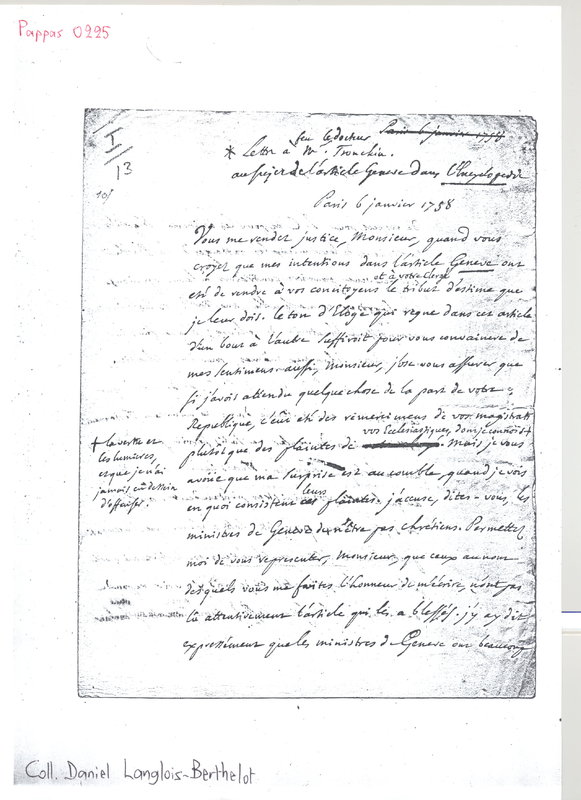 Pappas 0225
I
13
Paris 6 janvier 1758
feu le docteur
* Lettre à Mr. Tronchin.
au sujet de l'article Geneve dans l'Encyclopedie
Paris 6 janvier 1758
Vous me rendez justice, Monsieur, quand vous
croyez que mes intentions dans l'article Geneve ont
et à votre clergé
été de rendre à vos concitoyens le tribut d'estime que
je leur dois. le ton d'Eloge qui regne dans cet article
d'un bout à l'autre suffiroit pour vous convaincre de
mes sentimens. aussi, Monsieur, j'ose vous assurer que
si j'avois attendu quelque chose de la part de votre
Republique, c'eut été des remercimens de vos magistrats
vos Ecclesiastiques, dont je connois +
plutôt que des plaintes de . Mais je vous
+ la vertu et
les lumieres,
et que je n'ai
jamais eu dessein
d'offenser.
avoue que ma surprise est au comble, quand je vois
en quoi consistent leurs plaintes. j'accuse, dites-vous, les
ministres de Geneve de n'être pas chrétiens. Permettez
moi de vous representer, Monsieur, que ceux au nom
desquels vous me faites l'honneur de m'écrire, n'ont pas
lû attentivement l'article qui les a blessés. j'y ay dit
expressément que les ministres de Geneve ont beaucoup
Coll. Daniel Langlois-Berthelot